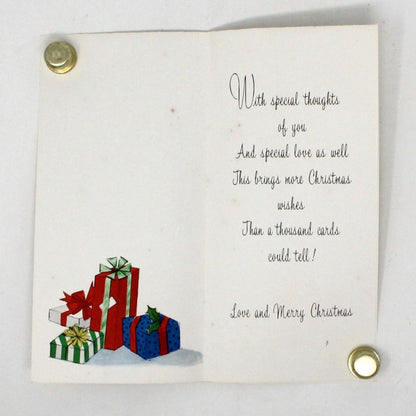 With special thoughts
of you
And special love as well
This brings more Christmas
wishes
Than a thousand cards
could tell!
Love and Merry Christmas